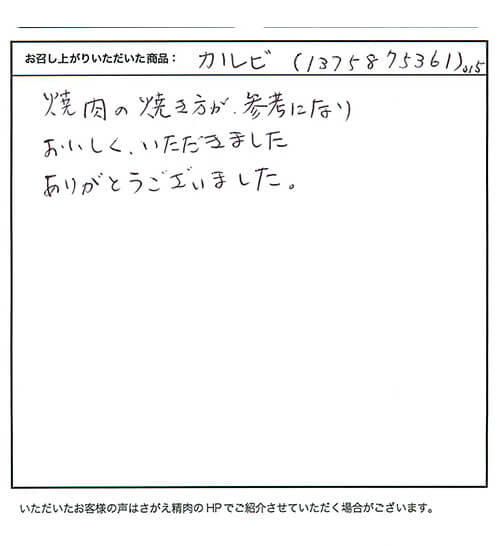 お召し上がりいただいた商品： カルビ (1375875361)015
焼肉の焼き方が、参考になり
おいしく、いただきました
ありがとうございました。
いただいたお客様の声はさがえ精肉のHPでご紹介させていただく場合がございます。